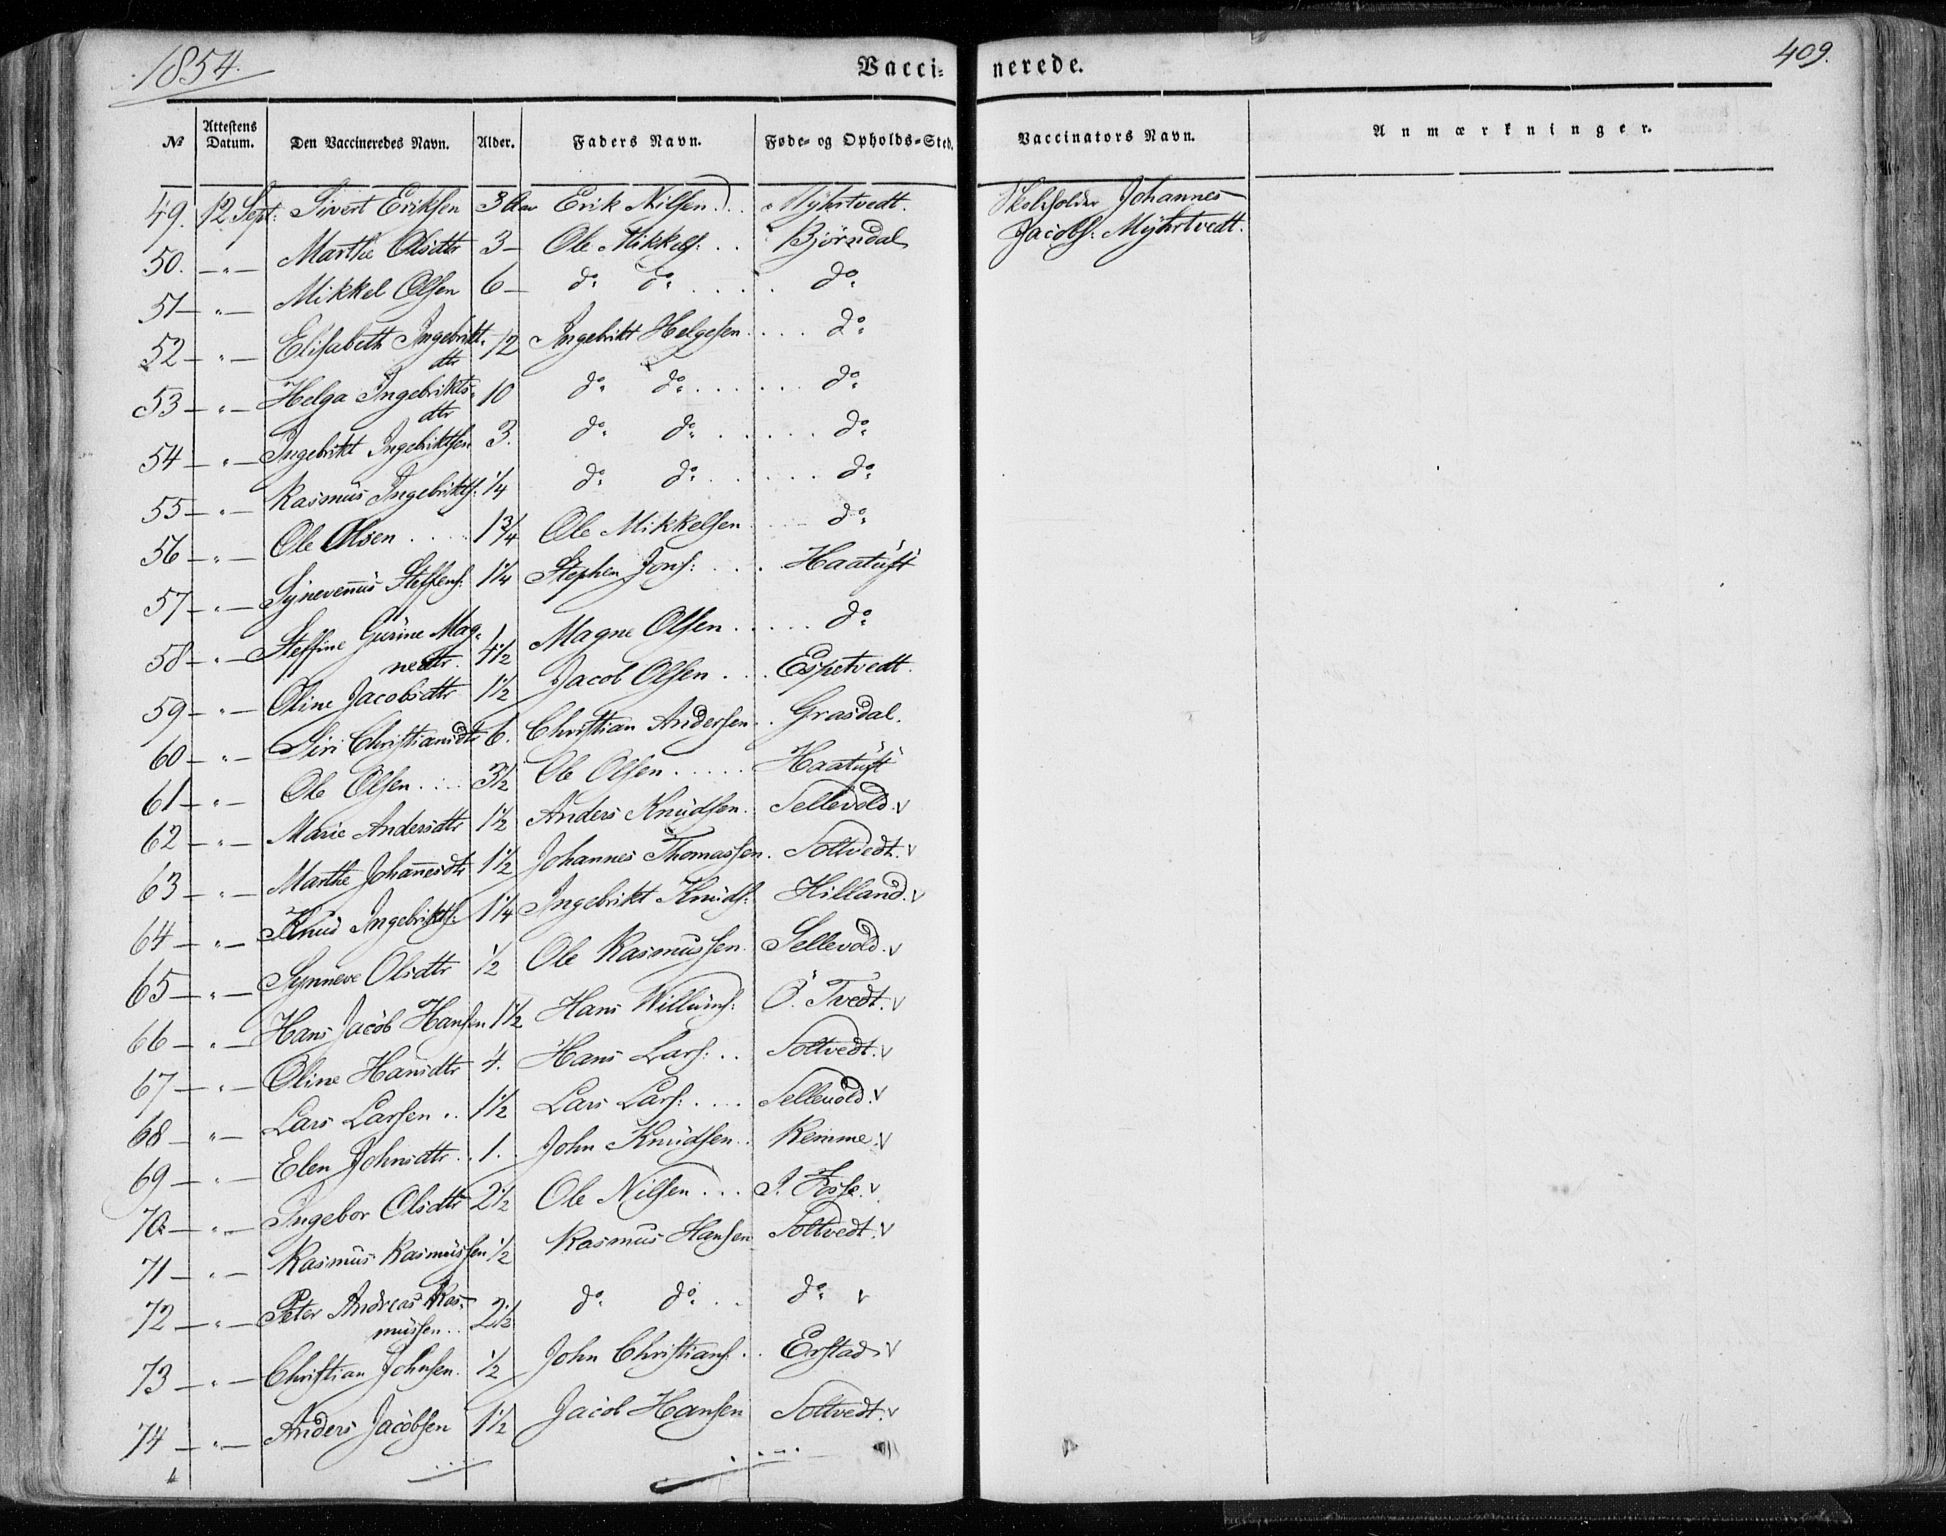 1854.
Vaccinerede.
409.
№ Attestens Datum. Den Vaccineredes Navn. Alder. Faders Navn. Føde- og Opholds-Sted. Vaccinators Navn. Anmærkninger.
49. 12 Sept: Sivert Eriksen 3 Erik Nilsen... Myhrtvedt. Skoleholder Johannes
50. — " — Marthe Olsdtr 3 — Ole Mikkels: .. Bjørndal Jacobs: Myhrtvedt.
51 — " — Mikkel Olsen 6 — do do .... do
52 — " — Elisabeth Ingebrikt- 1/2 Ingebrikt Helgesen .... do
dtr
53 — " — Helga Ingebrikts- 10 do do ...... do
dtr
54 — " — Ingebrikt Ingebriktsen 3. do do ...... do
55 — " — Rasmus Ingebrikts: 1/4 do do ...... do
56 — " — Ole Olsen .... 1 3/4 Ole Mikkelsen .... do
57 — " — Steffens: 1 1/4 Stephen Jons: .... Haatuft
58 — " — Steffine Gurine Mag- 4 1/2 Magne Olsen ..... do
nedtr.
59 — " — Oline Jacobsdtr 1 1/2 Jacob Olsen ... Espetvedt.
60 — " — Siri Christiansdtr 6. Christian Andersen .. Grasdal.
61 — " — Ole Olsen .... 3 1/2 Ole Olsen ..... Haatuft
62 — " — Marie Andersdtr 1 1/2 Anders Knudsen. Sellevold. v
63 — " — Marthe Johannesdtr 1 1/2 Johannes Thomassen. Soltvedt. v
64 — " — Knud Ingebrikts: 1 1/4 Ingebrikt Knuds: Hilland. v
65 — " — Synneve Olsdtr 1/2 Ole Rasmussen. Sellevold. v
66 — " — Hans Jacob Hansen 1 1/2 Hans Willums: Ö. Tvedt. v
67 — " — Oline Hansdtr 4. Hans Lars: .. Soltvedt. v
68 — " — Lars Larsen .. 1 1/2 Lars Lars: .... Sellevold. v
69 — " — Elen Johnsdtr. 1. John Knudsen .. Remme. v
70 — " — Ingebor Olsdtr 2 1/2 Ole Nilsen ... I. Fosse. v
71 — " — Rasmus Rasmussen 1/2 Rasmus Hansen Soltvedt. v
72 — " — Peter Andreas Ras- 2 1/2 do do .. do v
mussen..
73 — " — Christian Johnsen. 1/2 John Christians: .. Erstad v
74 — " — Anders Jacobsen 1 1/2 Jacob Hansen Soltvedt. v